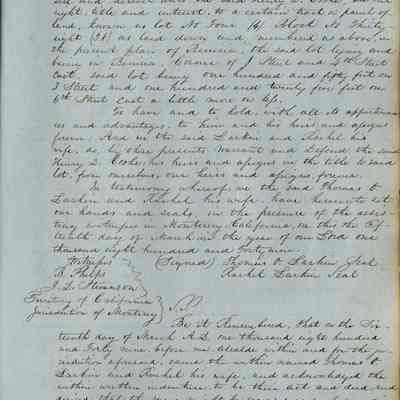 right, title, and interest, to a certain tract or parcel of
land, known as Lot No Four (4) Block No Thirty
eight (38) as laid down and numbered as above, in
the present plan of Benicia, the said lot lying and
being in Benicia, Corner of J Street and 6th Street
East, said lot being one hundred and fifty feet on
J Street and one hundred and twenty five feet on
6th Street East a little more or less.
To have and to hold, with all its appurtenan
ces and advantages, to him and his heirs and assigns
forever. And we the said Larkin and Rachel his
wife, do, by these presents, Warrant and Defend the said
Henry D. Cooke, his heirs and assigns in the title to said
lot, from ourselves, our heirs and assigns, forever.
In testimony whereof, we the said Thomas O.
Larkin and Rachel his wife, have hereunto set
our hands and seals, in the presence of the attes-
ting witnesses in Monterey California, on this the Fif-
teenth day of March in the year of our Lord one
thousand eight hundred and forty nine.
Witnesses (Signed) Thomas O. Larkin Seal
B. Phelps Rachel Larkin Seal
J. D. Stevenson
Territory of California
Jurisdiction of Monterey
Be it Remembered, that on the
teenth day of March A.D. one thousand eight hundred
and Forty Nine, before me Alcalde within and for the ju
risdiction aforesaid, came the within named Thomas O.
Larkin and Rachel his wife, and acknowledged the
within written indenture to be their act and deed and